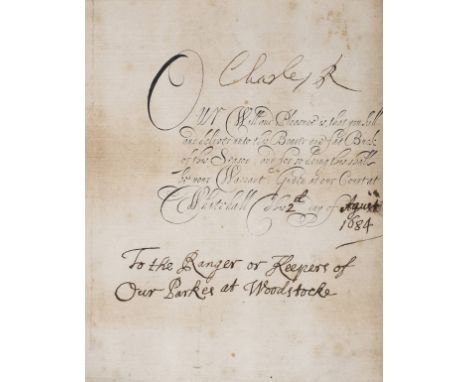 Charles R
Our Will and Pleasure is, that you kill
and deliver unto the Bearer one fat Buck
of this Season, and for so doing this shall
be your Warrant. Given at our Court at
Whitehall this 2d day of August
1684
To the Ranger or Keepers of
Our Parkes at Woodstocke